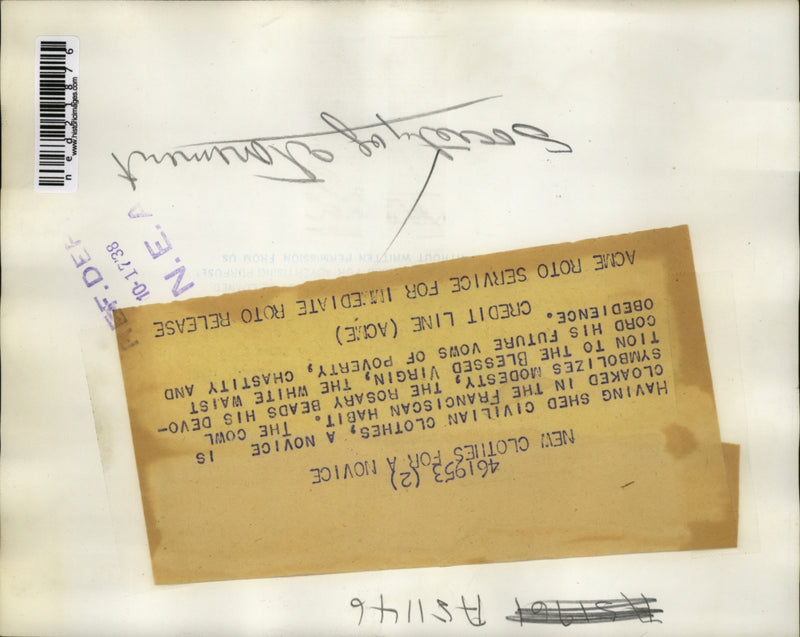 AS1146
461953 (2)
NEW CLOTHES FOR A NOVICE
HAVING SHED CIVILIAN CLOTHES, A NOVICE IS
CLOAKED IN THE FRANCISCAN HABIT. THE COWL
SYMBOLIZES MODESTY, THE ROSARY BEADS HIS DEVO-
TION TO THE BLESSED VIRGIN, THE WHITE WAIST
CORD HIS FUTURE VOWS OF POVERTY, CHASTITY AND
OBEDIENCE.
CREDIT LINE (ACME)
ACME ROTO SERVICE FOR IMMEDIATE ROTO RELEASE
FOR ADVERTISING PURPOSE
WITHOUT WRITTEN PERMISSION FROM US
Society of Atonement
REF. DEP
10-17-38
N. E. A
www.historicimages.com
ned21876